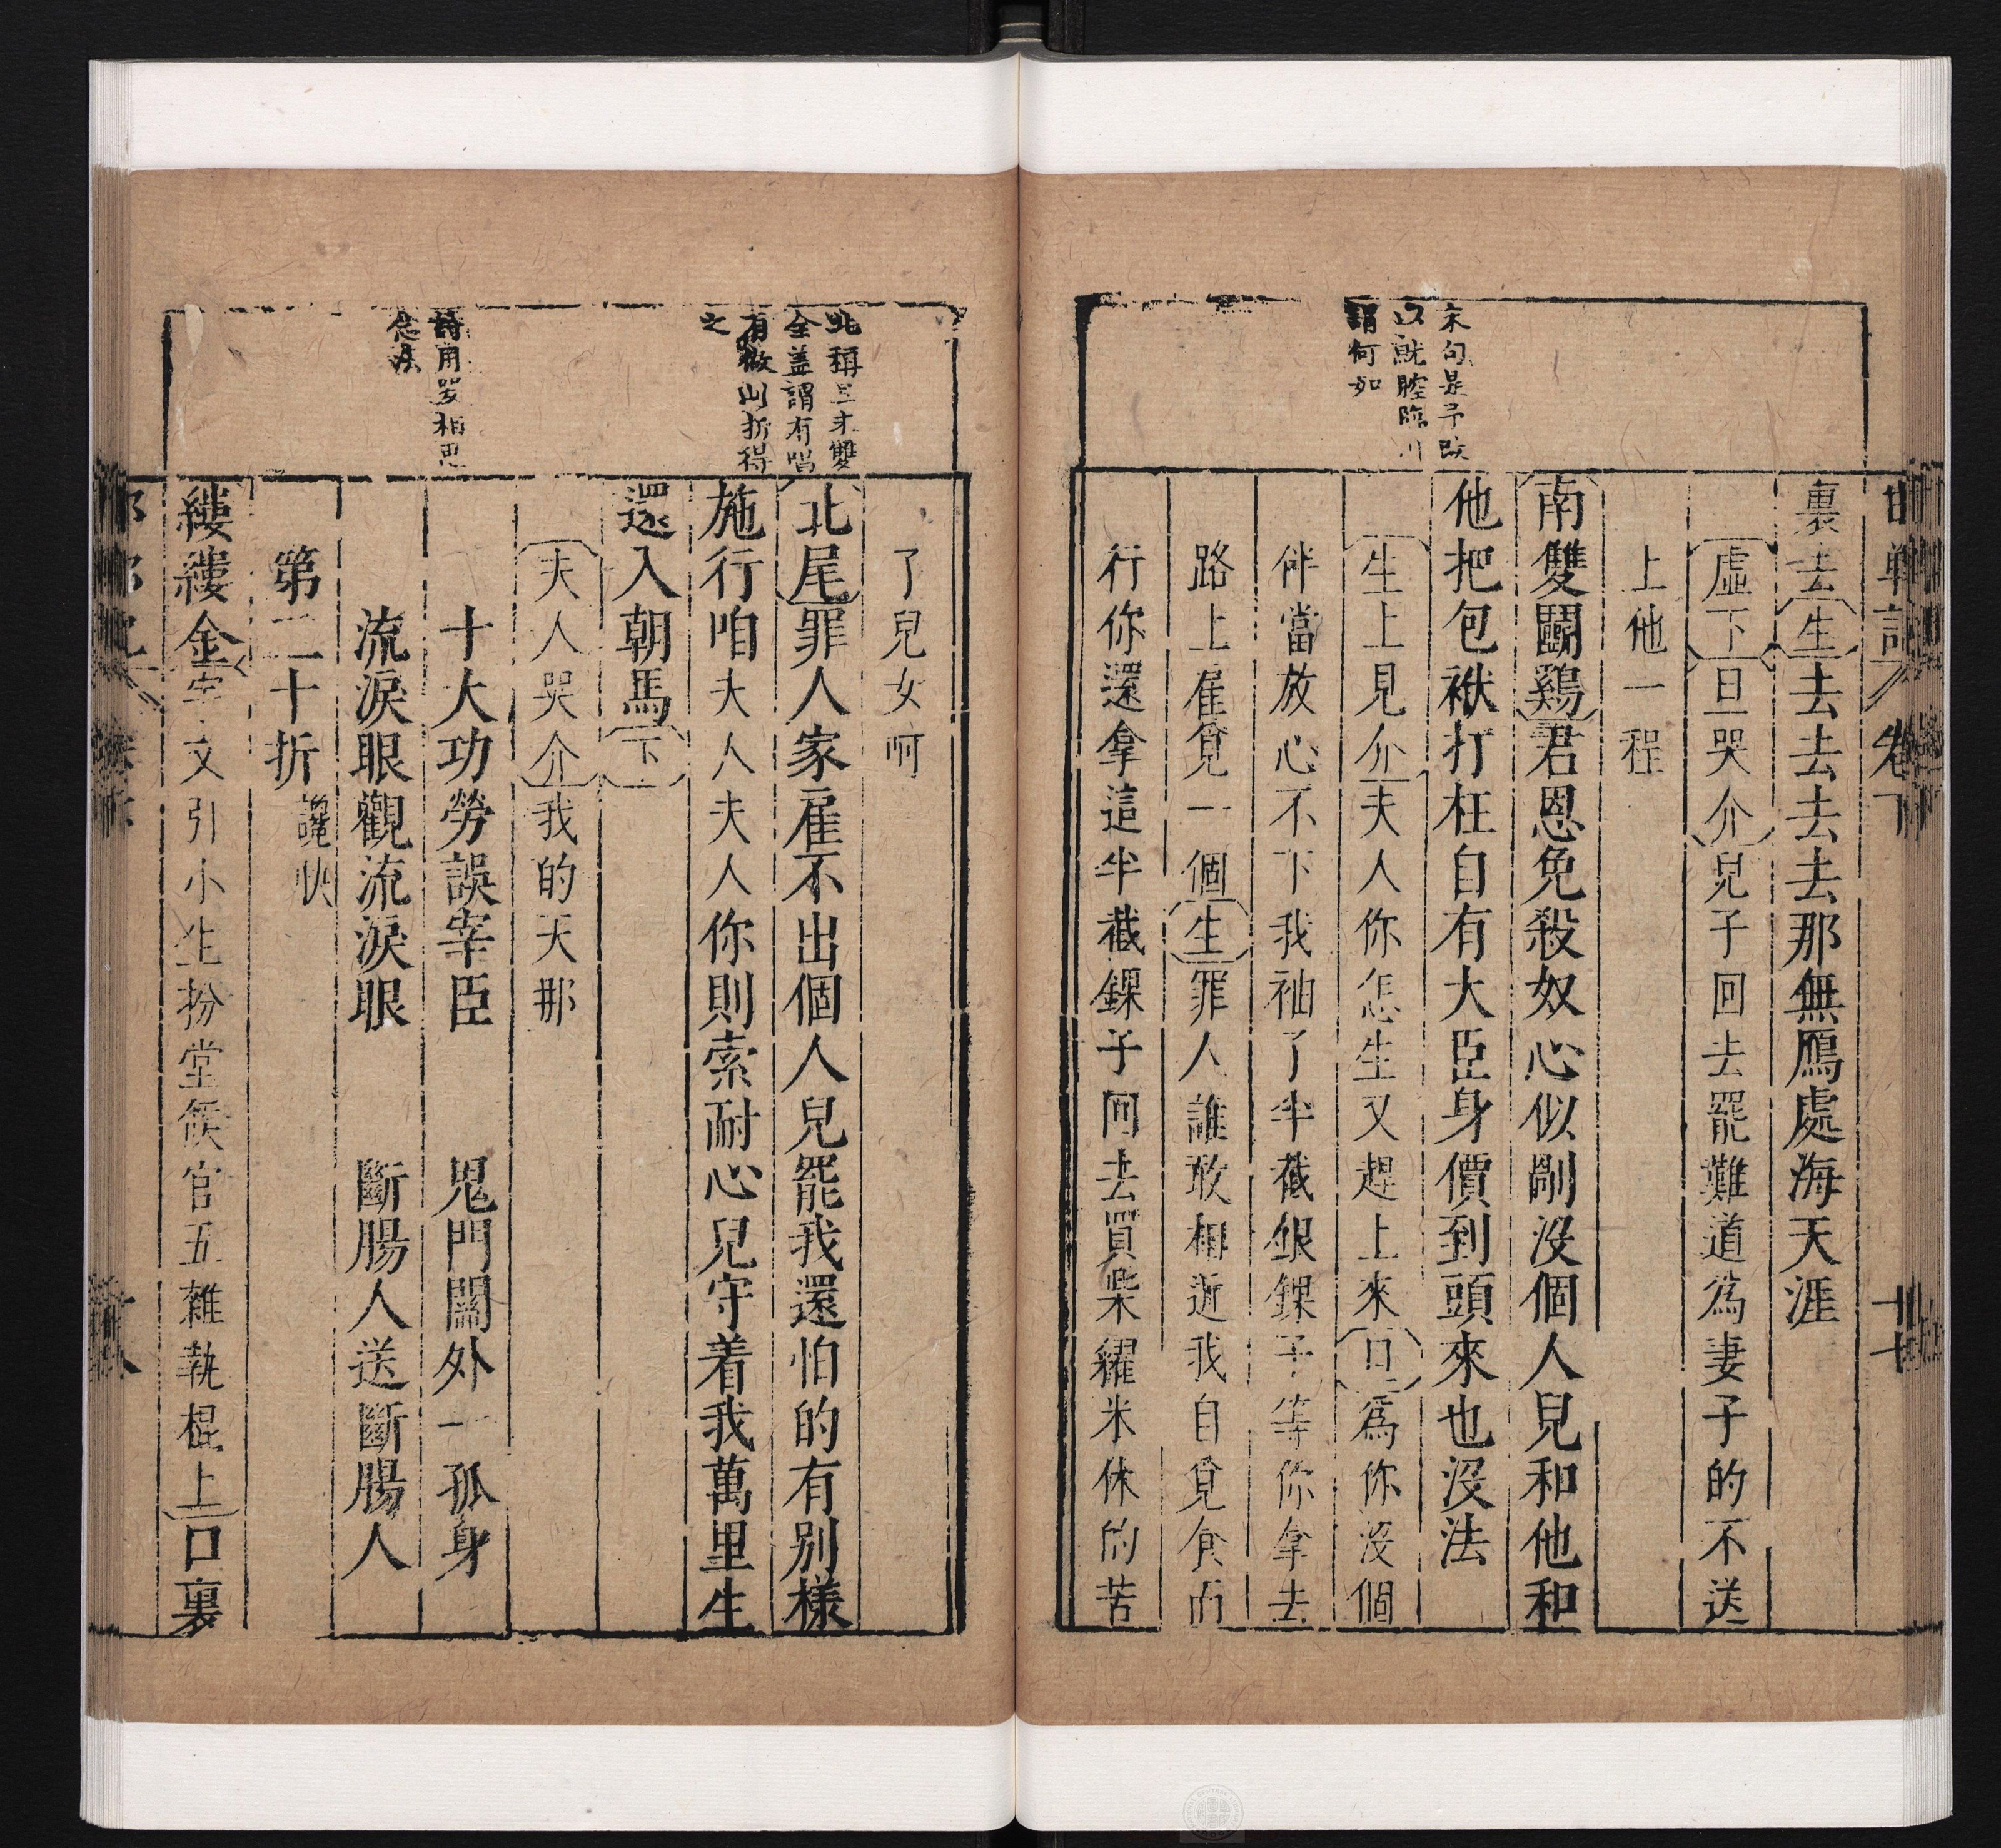 末句是予改
以就腔臨川
謂何如
裏去生去去去去那無鴈處海天涯
虛下旦哭介兒子回去罷難道為妻子的不送
上他一程
南雙鬪鷄君恩免殺奴心似剮沒個人兒和他和
他把包袱打枉自有大臣身價到頭來也沒法
生上見介夫人你怎生又趕上來旦為你沒個
伴當放心不下我袖了半截銀錁子等你拿去
路上雇覓一個生罪人誰敢相近我自覓食而
行你還拿這半截錁子回去買柴糴米休的苦
了兒女呵
北稱呈才雙
全蓋謂有唱
有做山折得
之
北尾罪人家雇不出個人兒罷我還怕的有別樣
施行咱夫人夫人你則索耐心兒守着我萬里生
還入朝馬下
夫人哭介我的天那
詩用哭相思
念法
十大功勞誤宰臣 鬼門關外一孤身
流淚眼觀流淚眼 斷腸人送斷腸人
第二十折 讒快
縷縷金字文引小生扮堂候官五雜執棍上口裏